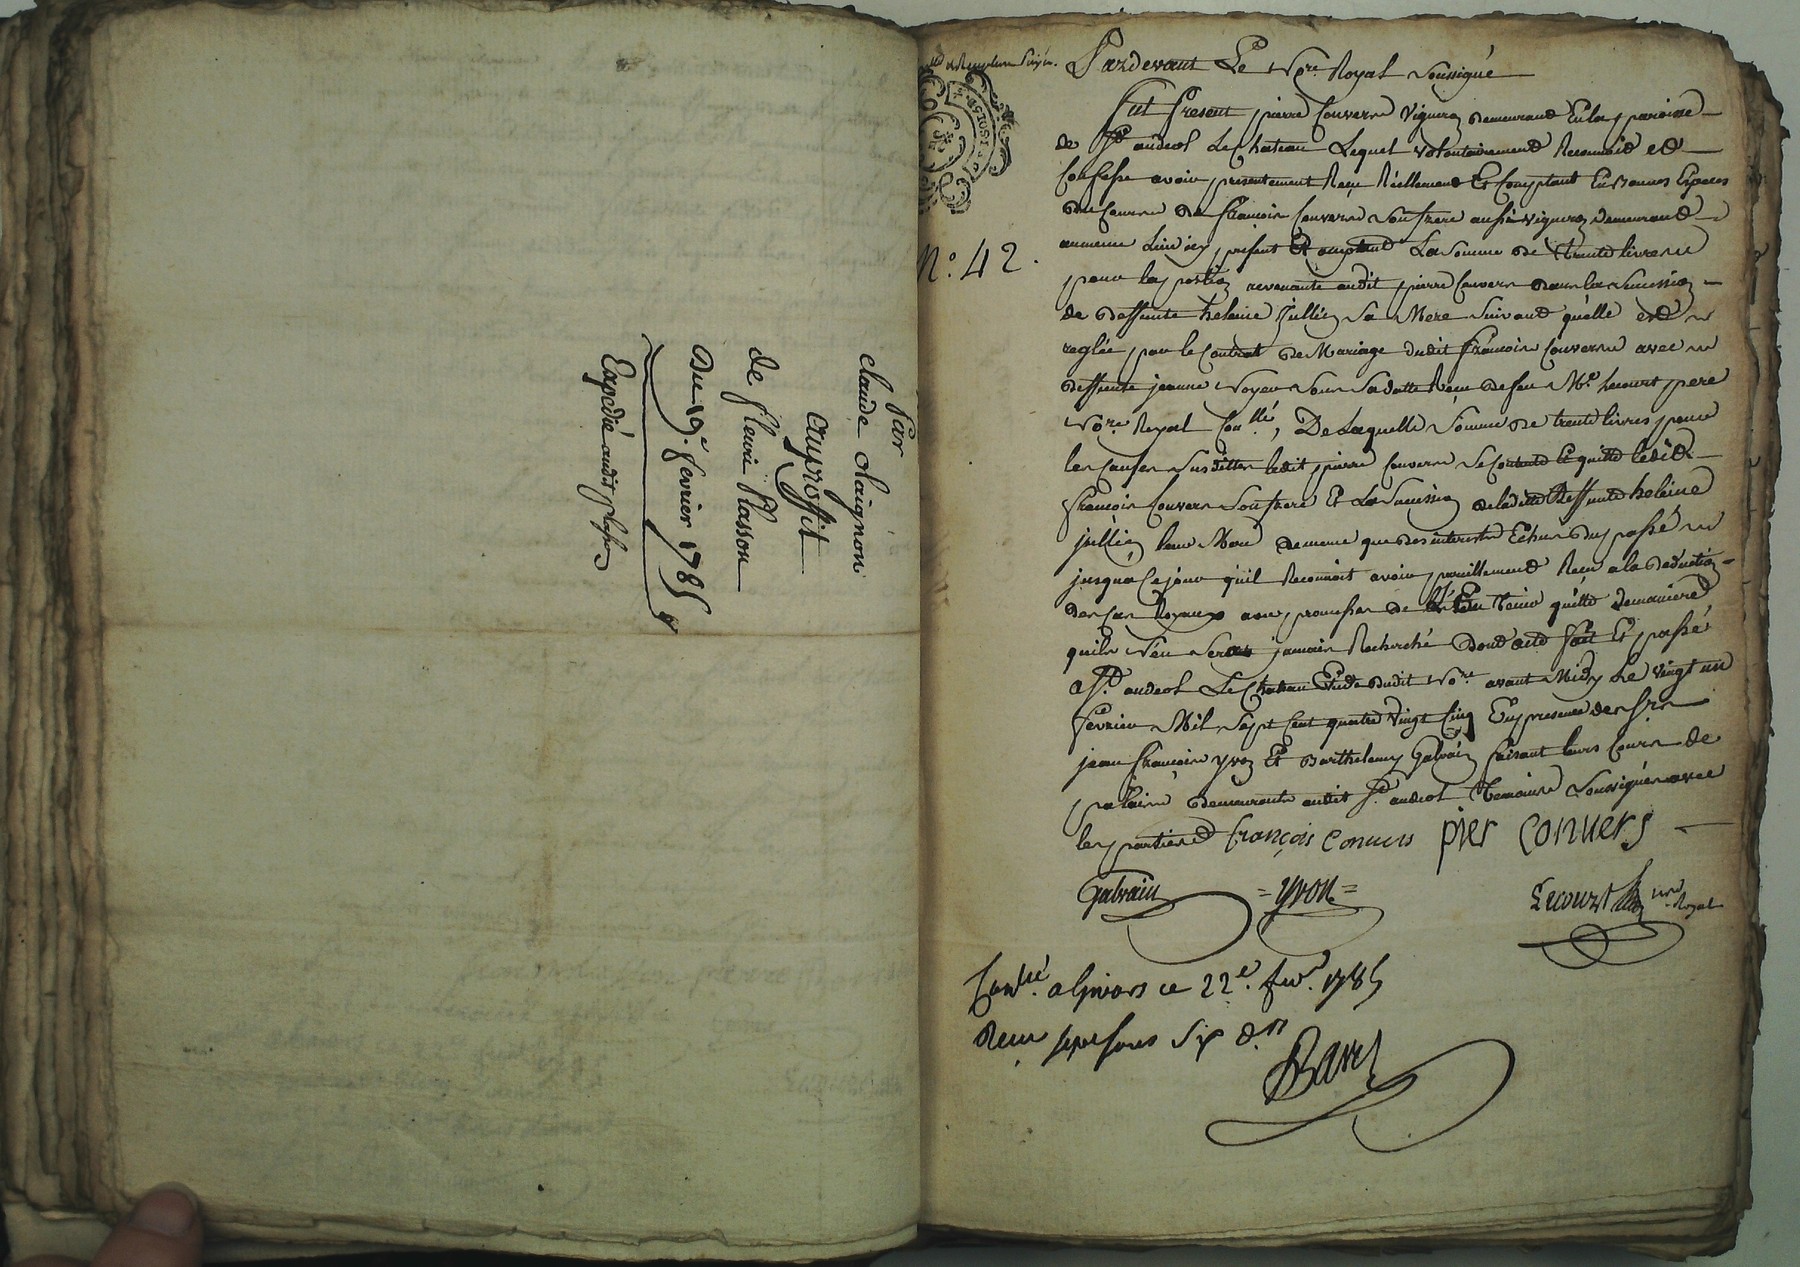 Par
claude chaignon
auproffit
de fleurie Plasson
Du 19.e fevrier 1785
Expedié audit plasson
Pardevant Le Nore Royal Soussigné
fut Present pierre Couvers Vigneron demeurant En la parroisse
de St andeol Le Chateau Lequel volontairement Reconnoit et
Confesse avoir presentement Reçu Réellement Et Comptant En Bonnes Especes
du Cours de francois Couvers Son frere aussi vigneron demeurant
au meme Lieu icy present Et acceptant La Somme de trente livres
pour la portion revenante audit pierre Couvers dans la Succession
de deffunte helaine Jullien Sa Mere Suivant qu'elle est
reglée par le Contrat de Mariage dudit francois Couvers avec
deffunte jeanne Noyer Sous Sa datte Reçu de feu Me lecourt pere
Nore Royal Conllé, De Laquelle Somme de trente livres pour
les causes Susdittes ledit pierre Couvers Se Contente Et quitte ledit
francois Couvers Son frere Et La Succession de laditte deffunte heleine
jullien leur Mere de meme que des interets Echus du passé
jusqua Ce jour qu'il Reconnoit avoir pareillement Reçu a la deduction
des Cas Royaux avec promesse de l'En tenir quitte de maniere
qu'il n'en Sera jamais Recherché Dont acte fait Et passé
a St. andeol Le Chateau Etude dudit Nore avant Midy Le vingt un
fevrier Mil Sept Cent quatre vingt Cinq En presence de srs
jean francois yvon Et Barthelemy Galvain faisant leurs Cours de
palais demeurants audit St. andeol temoins Soussignés avec
les parties françois conuers pier conuers
Galvain =yvon= Lecourt nre Royal
N.o 42.
Conllé. a Givors ce 22e. fev. 1785
Recu sept sous six drs
Bavel